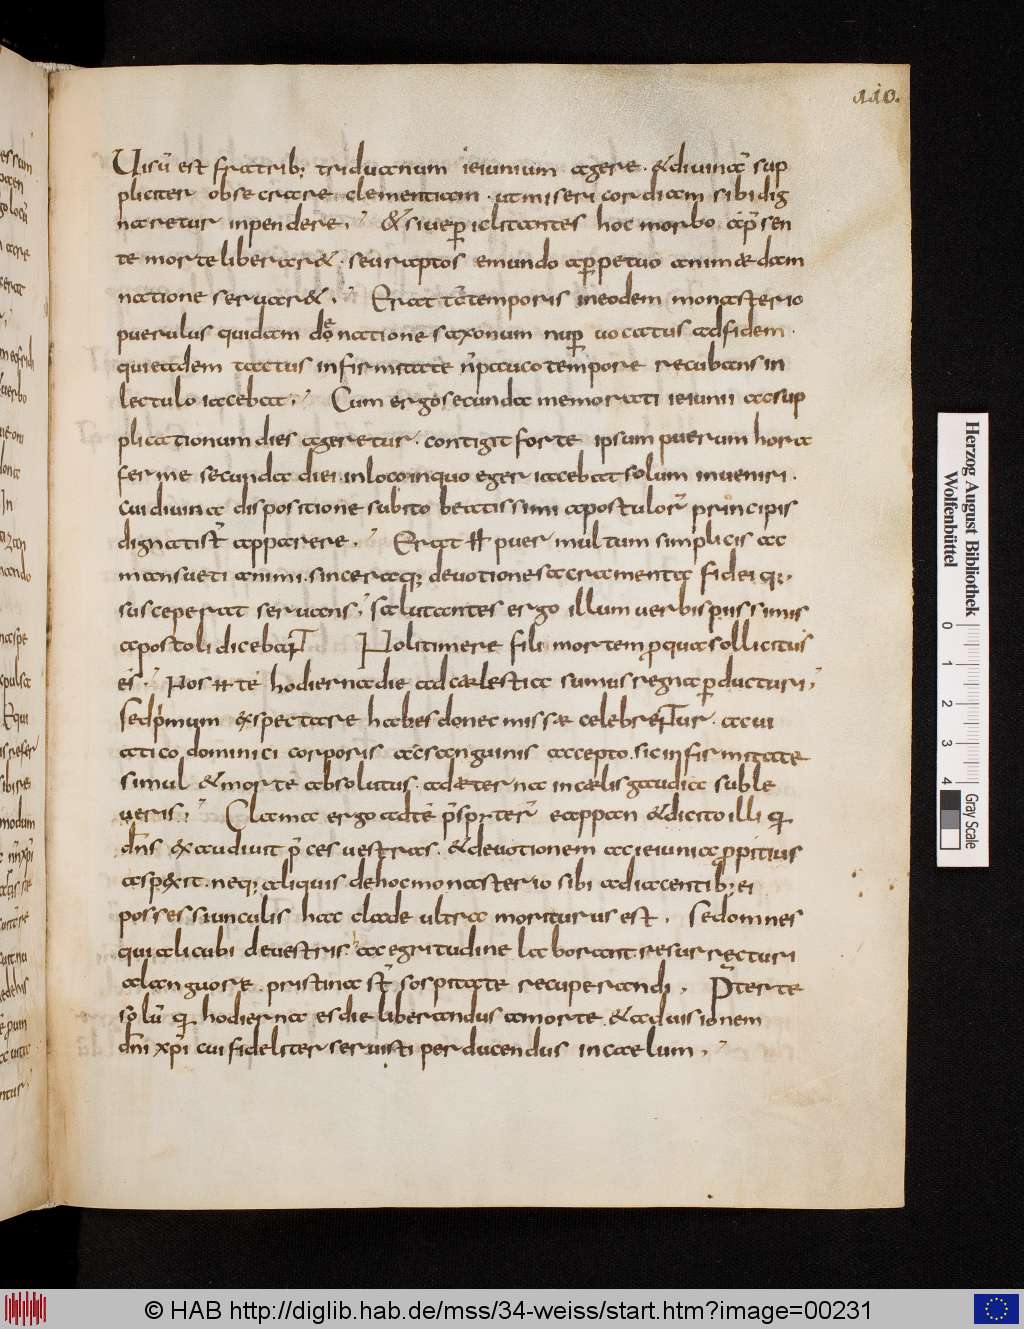 110.
Uisū est fratrib; triduanum ieiunium agere. & diuinā sup
pliciter obsecrare clementiam. ut misericordiam sibi dig
naretur inpendere; & siue periclitantes hoc morbo a p̄sen
te morte liberar&. seu raptos e mundo a perpetuo animae dam
natione seruar&; Erat tc̄ temporis in eodem monasterio
puerulus quidam de natione saxonum nup uocatus ad fidem.
qui eadem tactus infirmitate n̄ pauco tempore recubans in
lectulo iacebat; Cum ergo secunda memorati ieiunii ac sup
plicationum dies ageretur. contigit forte ipsum puerum hora
ferme secunda diei. in loco in quo eger iacebat solum inueniri.
cui diuina dispositione subito beatissimi apostulor̄ principis
dignati st̄ apparere; Erat puer multum simplicis ac
mansueti animi. sinceraq; deuotione sacramenta fidei q;
susceperat seruans; salutantes ergo illum uerbis piissimis
apostoli dicebant Noli timere fili mortem pro qua sollicitus
és; Nos te hodierna die ad caelestia sumus regna perducturi;
sed primum expectare habes donec missae celebrentur. ac ui
atico dominici corporis ac sanguinis accepto. sic infirmitate
simul & morte absolutus. ad aeterna in caelis gaudia suble
ueris; Clama ergo ad té p̄sƀrter̄ eappan & dicito illi q
dn̄s exaudiuit p̄ces uestras. & deuotionem ac ieiunia propitius
aspexit. neq; aliquis de hoc monasterio siue adiacentib; ei
possessiunculis hac clade ultra moriturus est. sed omnes
qui alicubi de uestris hac egritudine laborant. resurrecturi
a languore. pristina st̄ sospitate recuperandi. Pr̄ter te
solū q hodierna es die liberandus a morte. & ad uisionem
dn̄i xp̄i cui fideliter seruisti perducendus in caelum;
Herzog August Bibliothek
Wolfenbüttel
0 1 2 3 4
Gray Scale
© HAB http://diglib.hab.de/mss/34-weiss/start.htm?image=00231